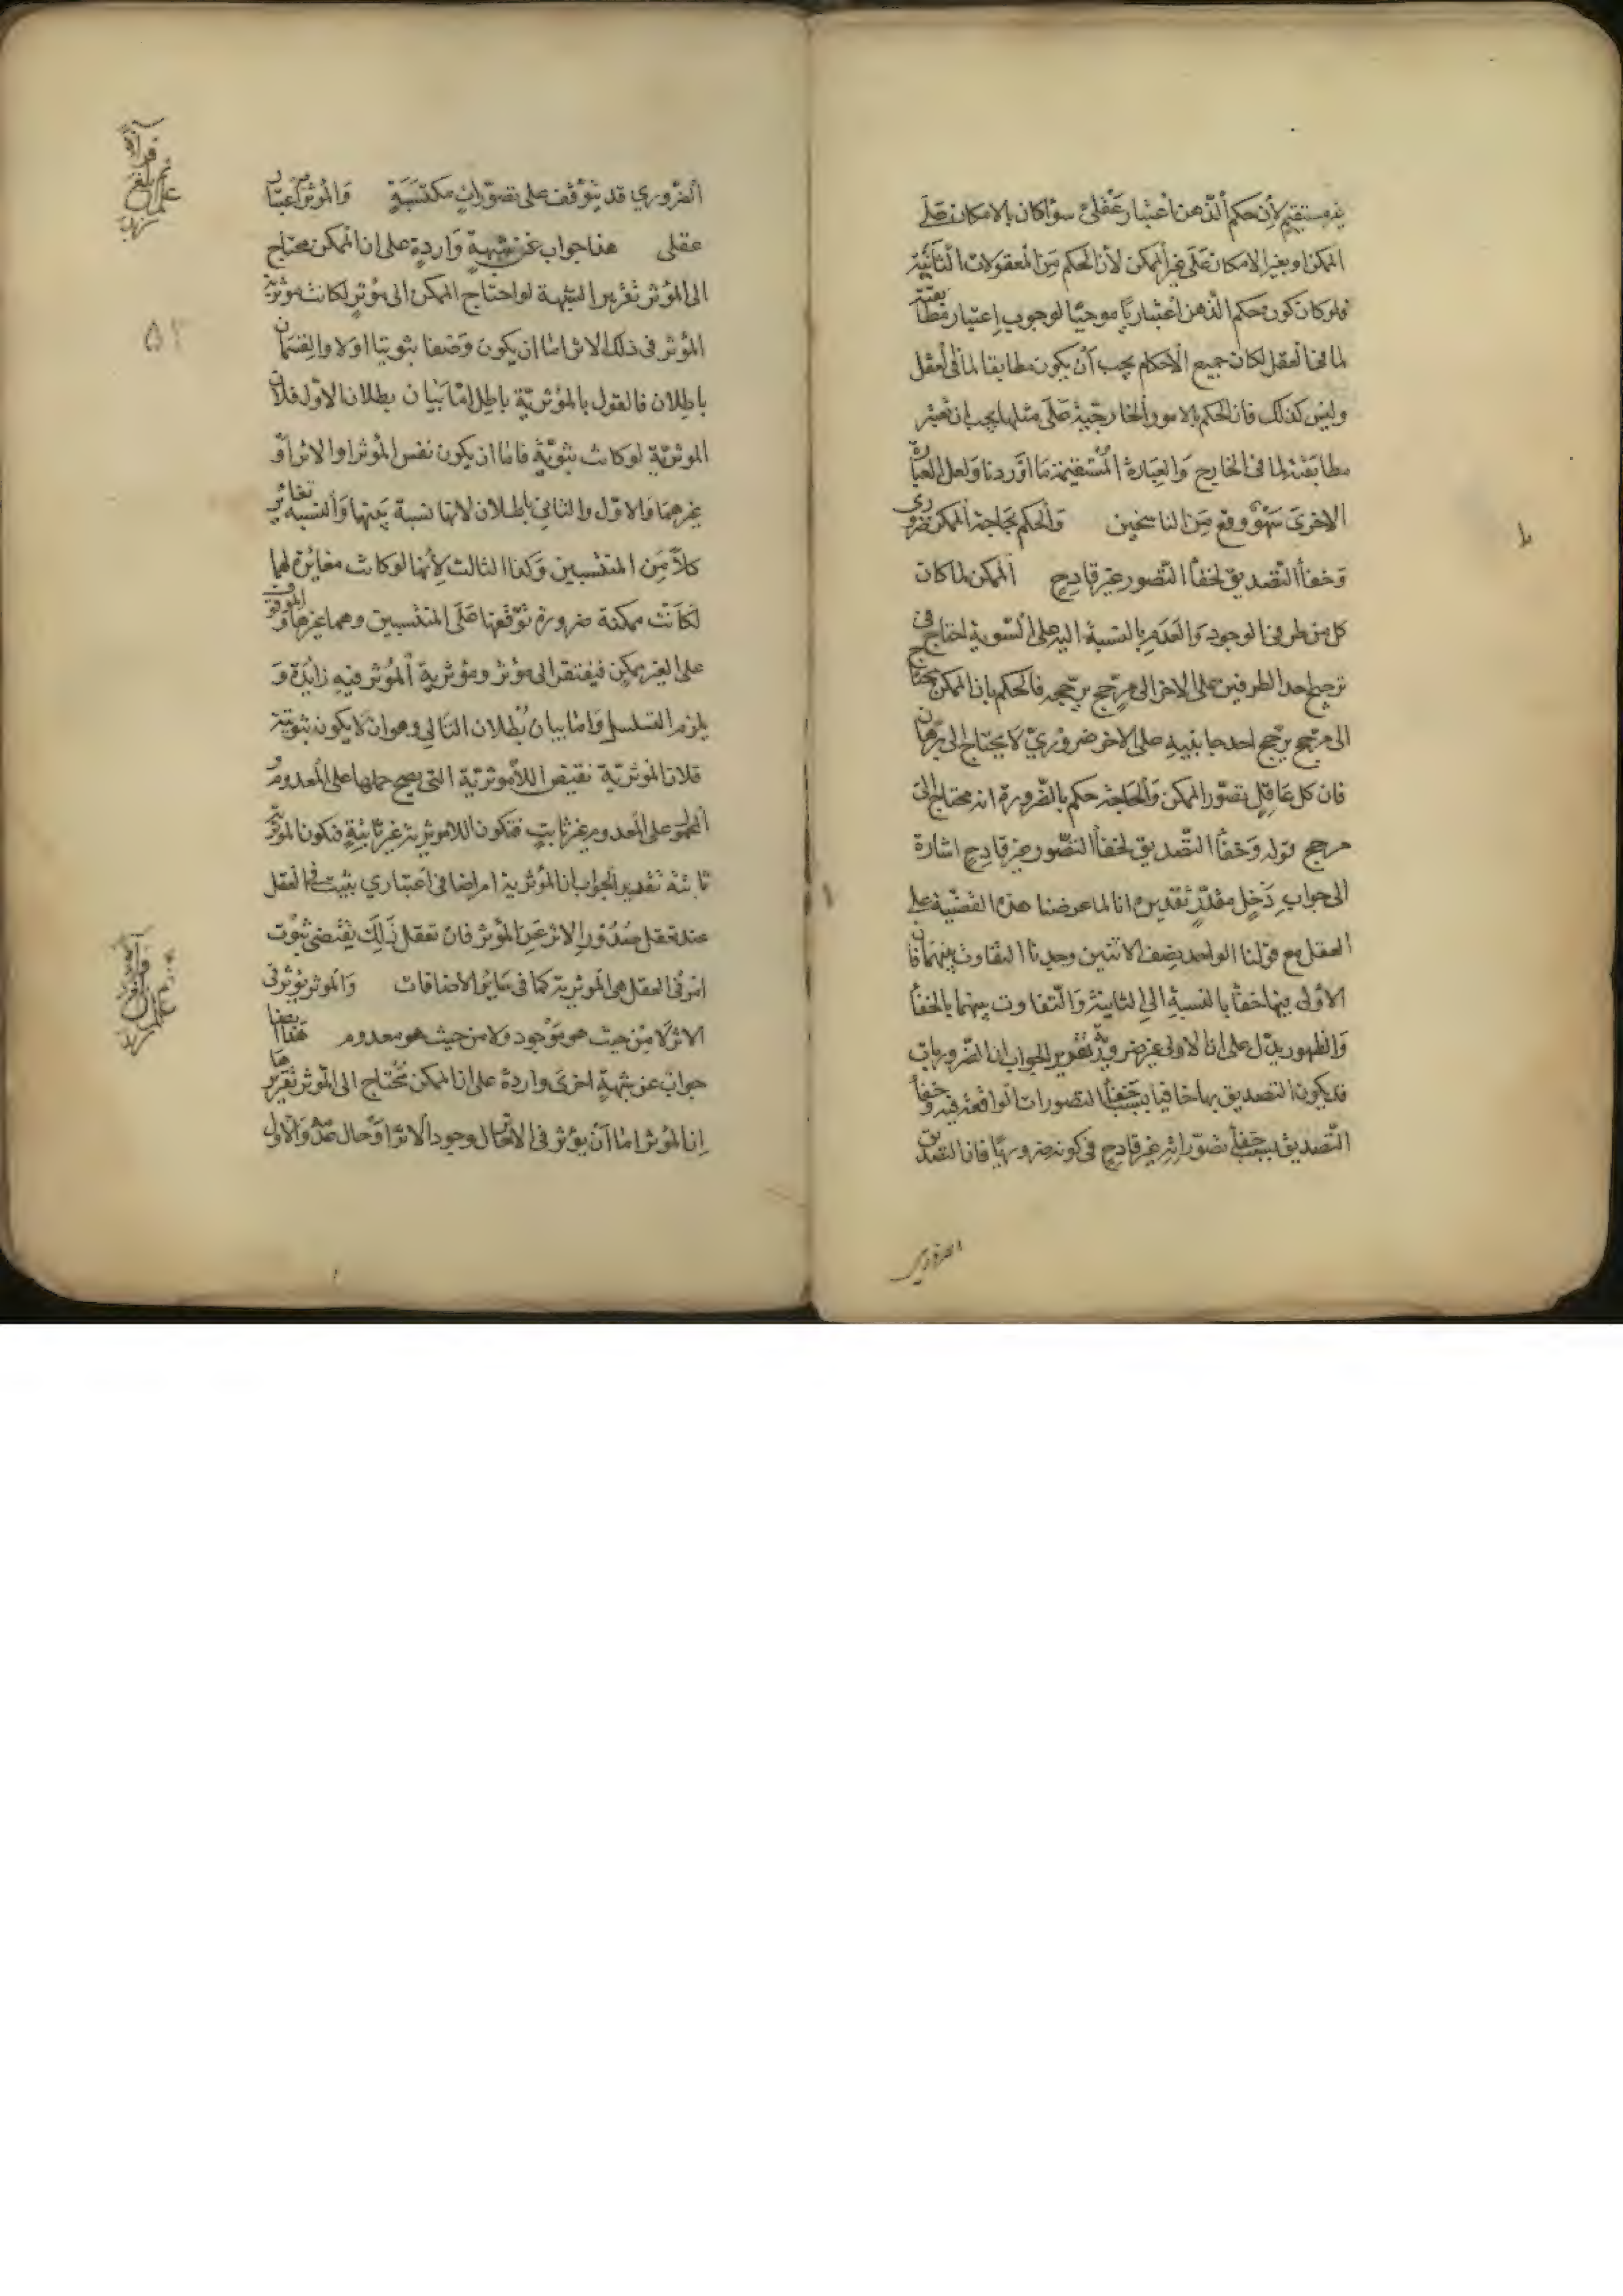 غير مستقيم لأن حكم الذهن اعتبار عقلي سواء كان بالامكان على
الممكن او بغير الامكان على غير الممكن لأن الحكم من المعقولات الثانية
ولو كان كون حكم الذهن اعتباريا موجبا لوجوب اعتبار مطابقته
لما في العقل لكان جميع الاحكام يجب أن يكون مطابقا لما في العقل
وليس كذلك فان الحكم بالامور الخارجية على مثلها يجب ان تعتبر
مطابقته لما في الخارج والعبارة المستقيمة ما اوردنا ولعل العبارة
الاخرى سهو وقع من الناسخين والحكم بحاجة الممكن ضروري
وخفأ التصديق لخفأ التصور غير قادح الممكن لما كان
كل من طرفي الوجود والعدم بالنسبة اليه على السوية احتاج في
ترجيح احد الطرفين على الاخر الى مرجح يرجحه فالحكم بان الممكن يحتاج
الى مرجح يرجح احد جانبيه على الاخر ضروري لا يحتاج الى برهان
فان كل عاقل تصور الممكن والحاجة حكم بالضرورة انه محتاج الى
مرجح قوله وخفأ التصديق لخفأ التصور غير قادح اشارة
الى جواب دخل مقدر تقديره انا لما عرضنا هذه القضية على
العقل مع قولنا الواحد نصف الاثنين وجدنا التفاوت بينهما فان
الأولى فيها خفأ بالنسبة الى الثانية والتفاوت بينهما بالخفأ
والظهور يدل على ان الاولى غير ضرورية تقرير الجواب ان الضروريات
قد يكون التصديق بها خافيا بسبب خفأ التصورات الواقعة فيه وخفأ
التصديق بسبب خفأ تصوراته غير قادح في كونه ضروريا فان التصديق
الضروري
الضروري قد يتوقف على تصورات مكتسبة والمؤثرية اعتبار
عقلي هذا جواب عن شبهة واردة على ان الممكن محتاج
الى المؤثر تقرير الشبهة لو احتاج الممكن الى مؤثر لكانت مؤثرية
المؤثر في ذلك الاثر اما ان يكون وصفا ثبوتيا اولا والقسمان
باطلان فالقول بالمؤثرية باطل اما بيان بطلان الاول فلان
المؤثرية لو كانت ثبوتية فاما ان يكون نفس المؤثر او الاثر او
غيرهما والاول والثاني باطلان لانها نسبة بينهما والنسبة تغاير
كلا من المنتسبين وكذا الثالث لأنها لو كانت مغايرة لهما
لكانت ممكنة ضرورة توقفها على المنتسبين وهما غيرها والموقوف
على الغير ممكن فيفتقر الى مؤثر ومؤثرية المؤثر فيه زايدة و
يلزم التسلسل واما بيان بطلان التالي وهو ان لا يكون ثبوتية
فلان المؤثرية نقيض اللامؤثرية التي يصح حملها على المعدوم
المحمول على المعدوم غير ثابت فتكون اللامؤثرية غير ثابتة فتكون المؤثرية
ثابتة تقدير الجواب ان المؤثرية امر اضافي اعتباري يثبت في العقل
عند تعقل صدور الاثر عن المؤثر فان تعقل ذلك يقتضي ثبوت
امر في العقل هي المؤثرية كما في سائر الاضافات والمؤثر يؤثر في
الاثر لا من حيث هو موجود ولا من حيث هو معدوم هذا ايضا
جواب عن شبهة اخرى واردة على ان الممكن محتاج الى المؤثر تقريرها
ان المؤثر اما أن يؤثر في الاثر حال وجود الاثر او حال عدمه والاول
٥٢